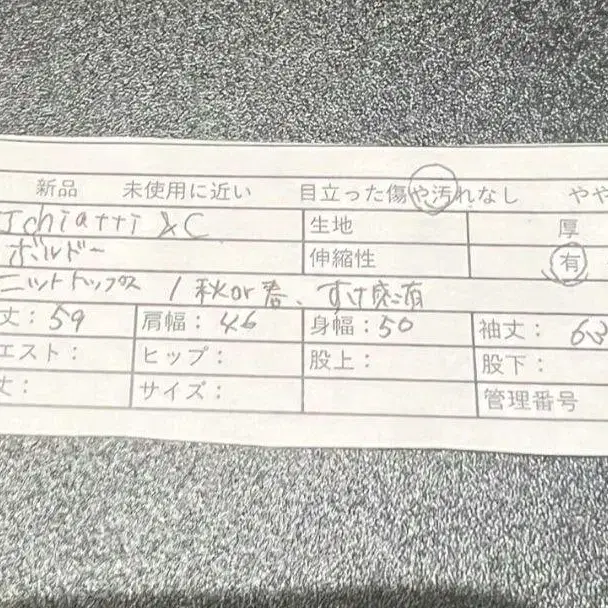 新品 未使用に近い 目立った傷や汚れなし やや
Ichiatti & C 生地 厚
ボルドー 伸縮性 有
ニットトップス / 秋or春、すけ感有
丈：59 肩幅：46 身幅：50 袖丈：63
エスト： ヒップ： 股上： 股下：
丈： サイズ： 管理番号